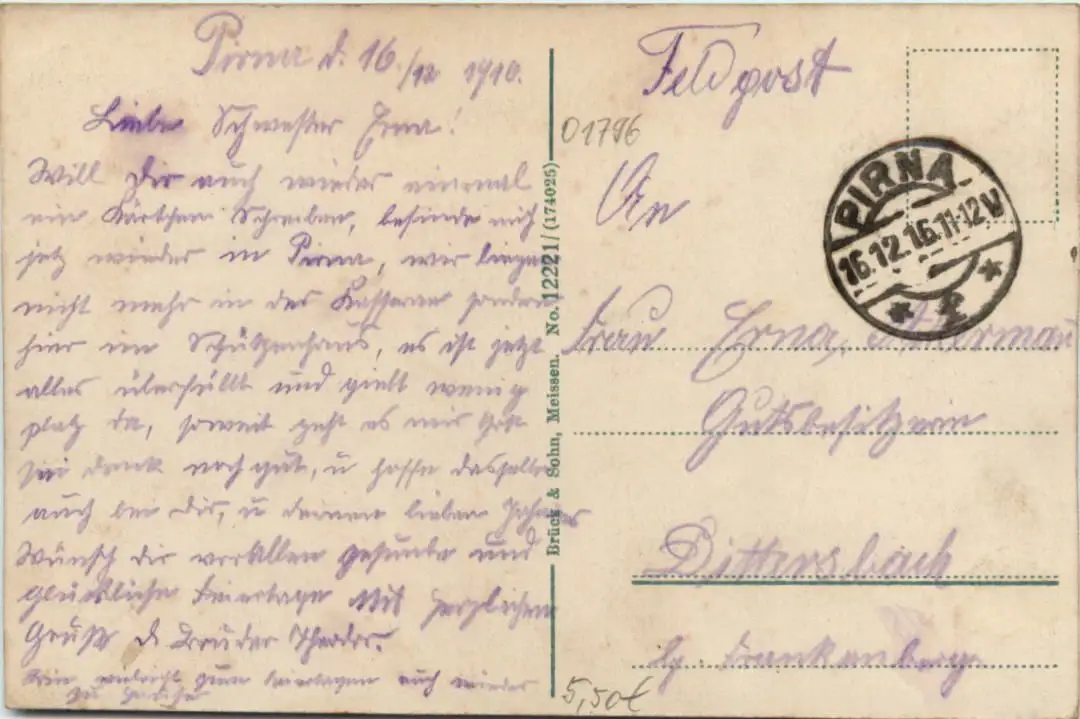 Pirna d. 16./12 1916.
Liebe Schwester Erna!
Will Dir auch wieder einmal
ein Kärtchen Schreiben, befinde mich
jetz wieder in Pirna, wir liegen
nicht mehr in der Kasserne sondern
hier im Schützenhaus, es ist jetzt
alles überfüllt und giebt wenig
platz da, soweit geht es mir Gott
sei dank noch gut, u hoffe dasselbe
auch bei Dir, u deinen lieben
Wünsch dir vor Allen gesunde und
glückliche Feiertage Mit herzlichen
Gruß d Bruder Theodor.
vieleicht zum Feiertagen auch wieder
zu
Brück & Sohn, Meissen. No. 12221/(174025)
Feldpost
01796
An
Frau Erna
Gutsbesitzerin
Dittersbach
Frankenberg
PIRNA
16.12.16.11-12V
* *
5,50€